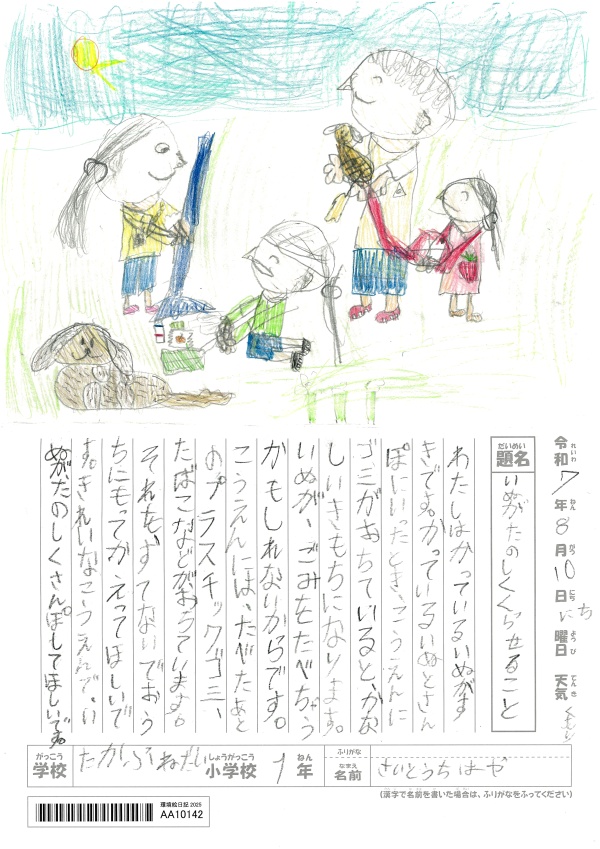 令和7年8月10日にち曜日 天気くもり
れいわ ねん がつ にち ようび てんき
だいめい
題名 いぬがたのしくくらせること
わたしはかっているいぬがす
きです。かっているいぬとさん
ぽにいったとき、こうえんに
ゴミがおちていると、かな
しいきもちになります。
いぬが、ごみをたべちゃう
かもしれないからです。
こうえんには、たべたあと
のプラスチックゴミ、
たばこなどがおちています。
それを、すてないでおう
ちにもってかえってほしいで
す。きれいなこうえんで、い
ぬがたのしくさんぽしてほしいです。
がっこう しょうがっこう ねん ふりがな
学校 小学校 1年
なまえ
名前 さいとうちはや
(漢字で名前を書いた場合は、ふりがなをふってください)
環境絵日記 2025
AA10142